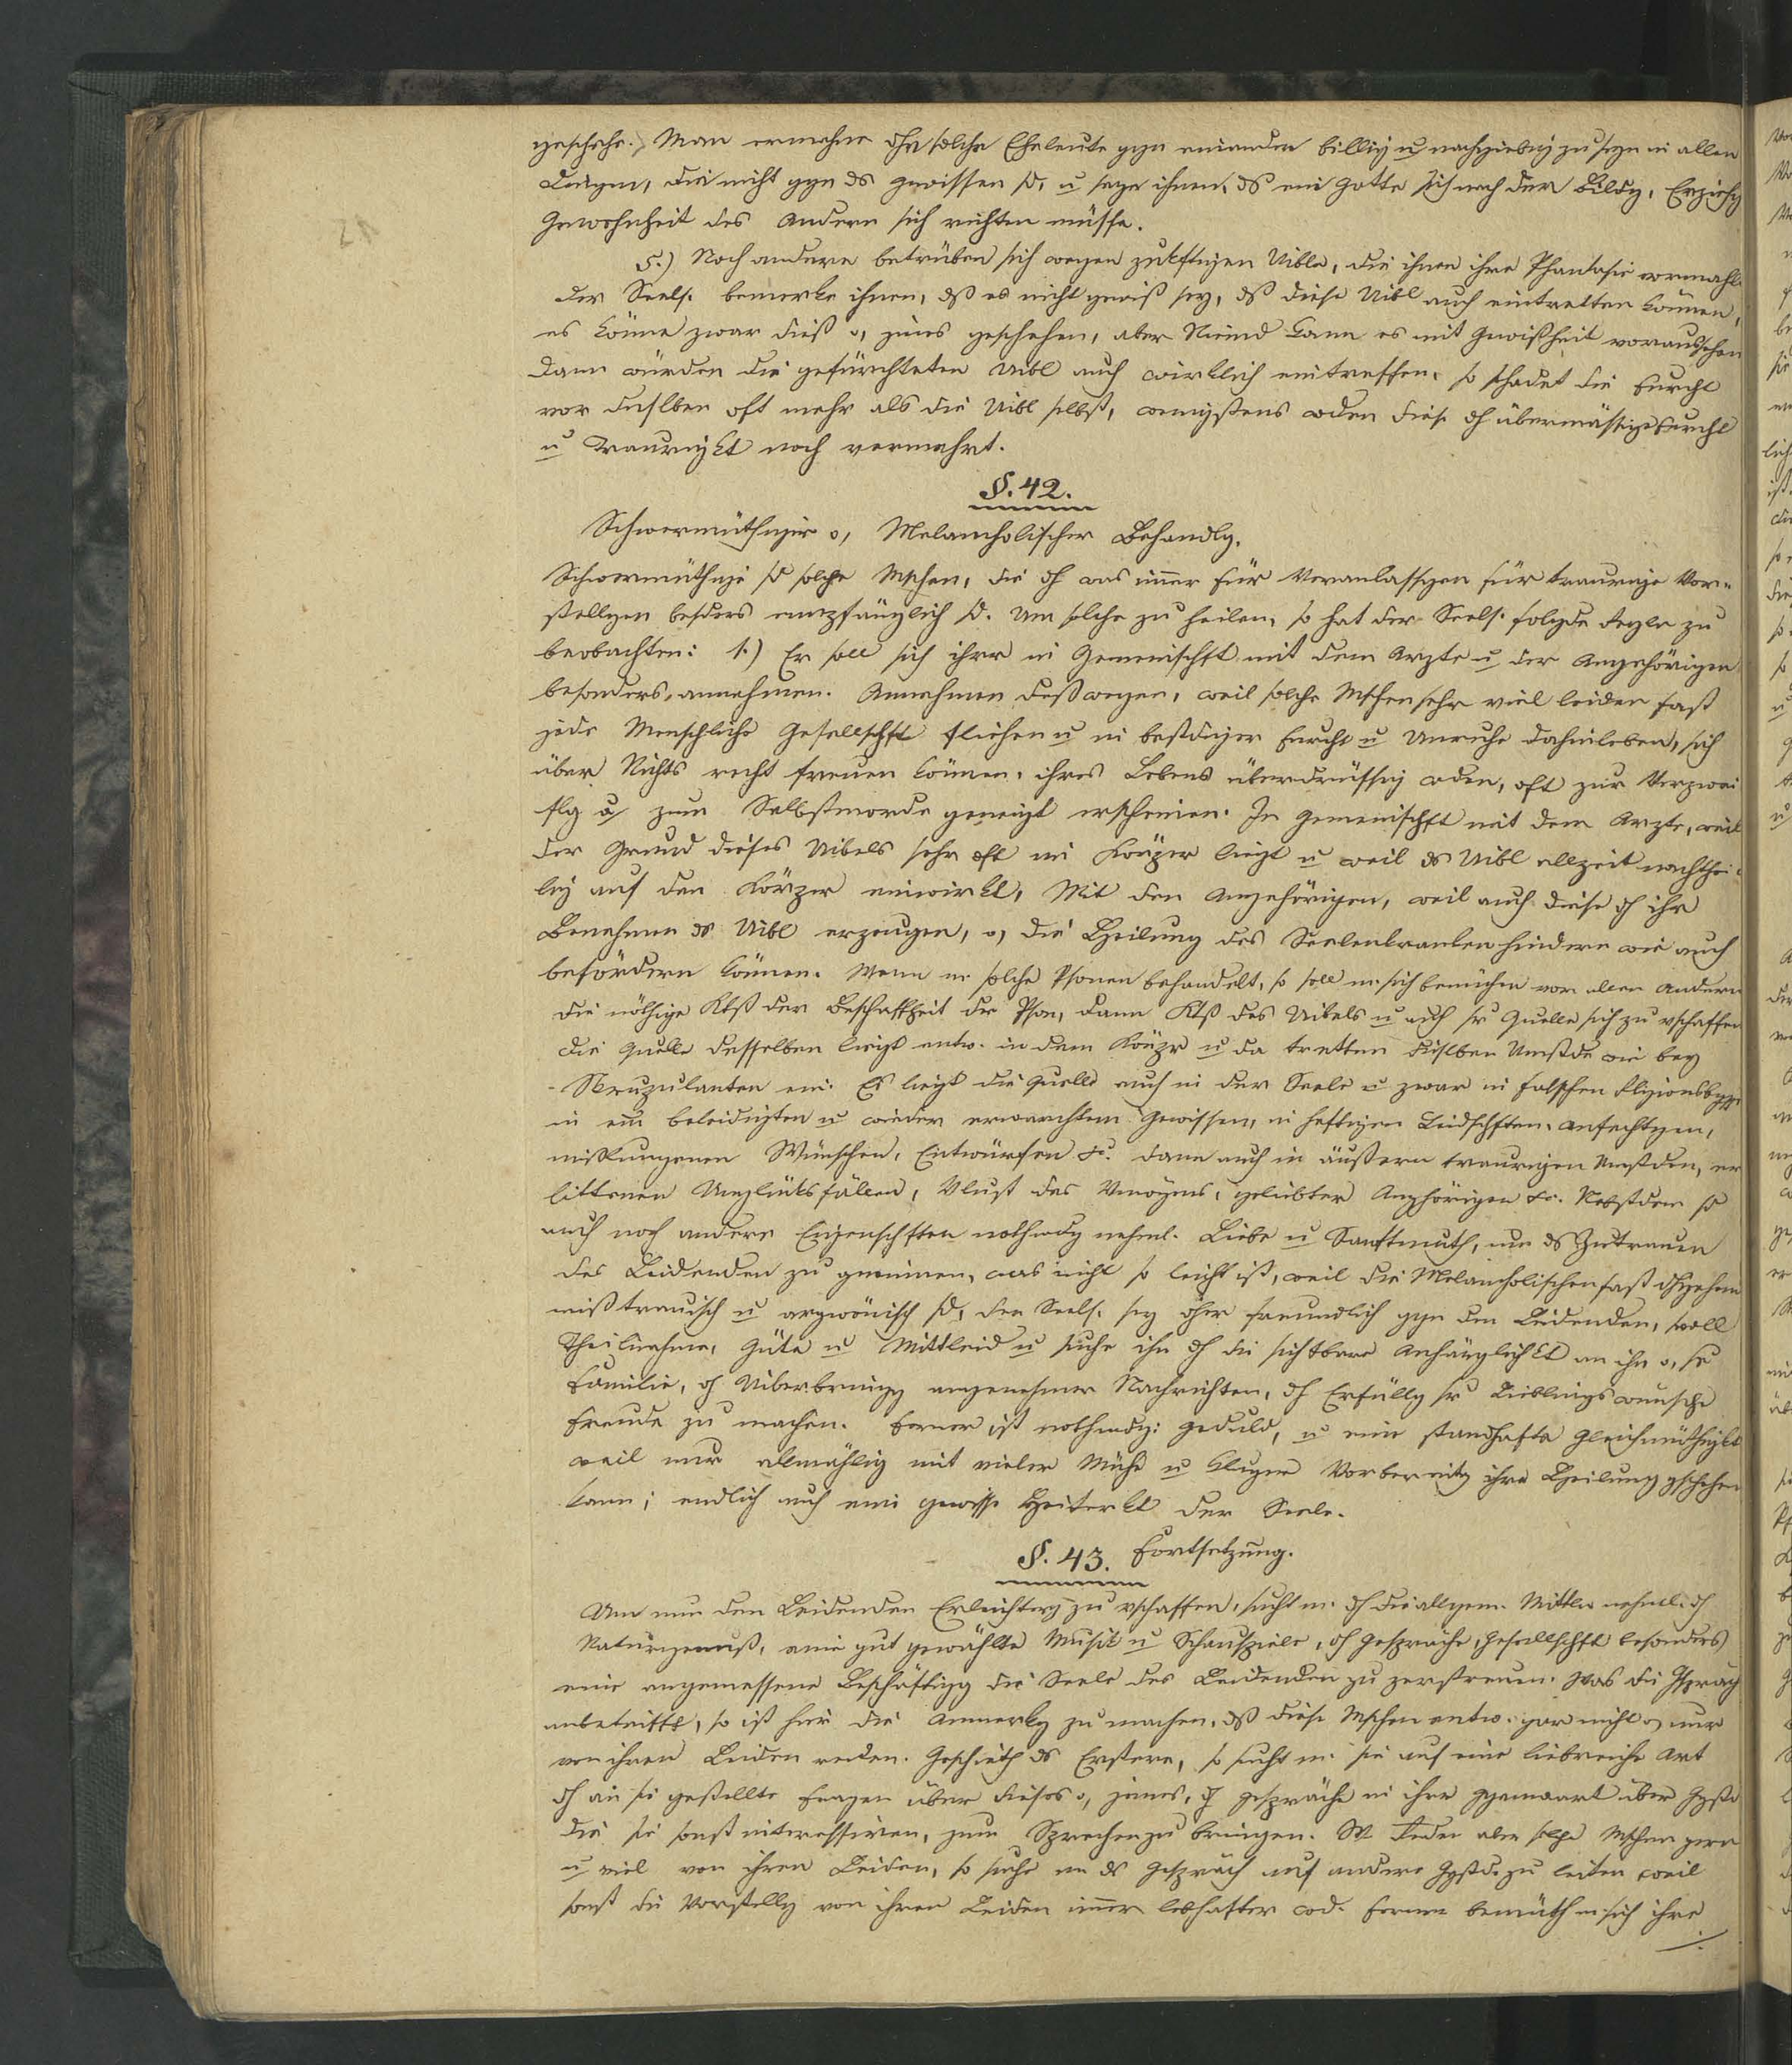 geschehe. Man ermahne dhr solche Eheleute ggn einander billig u nachgiebig zu seyn in allen
Dingen, die nicht ggn ds Gewissen sd, u sage ihnen, ds ein Gatte sich nach der Bildg, Erziehg
Gewohnheit des Andern sich richten müsse.
5.) Noch andere betrüben sich wegen zukftigen Uibln, die ihnen ihre Phantasie vormahlt
der Seels. bemerke ihnen, dß es nicht gewiß sey, dß diese Uibl auch eintretten können,
es könne zwar dieß o, jenes geschehen, aber Niemd kann es mit Gewißheit voraussehen
Dann würden die gefürchteten Uibl auch wirklich eintreffen, so schadet die Furcht
vor denslben oft mehr als die Uibl selbst, wenigstens wden diese dh übermässige Furcht
u Traurigkt noch vermehrt.
§. 42.
Schwermüthiger o, Melancholischer Behandlg.
Schwermüthige sd solche Mschen, die dh was imer für Veranlassgen für traurige Vor-
stellgen besders empfänglich sd. Um solche zu heilen, so hat der Seels. folgde Regln zu
beobachten: 1.) Er soll sich ihrer in Gemeinschft mit dem Arzte u der Angehörigen
besonders annehmen. Annehmen deßwegen, weil solche Mschen sehr viel leiden fast
jede Menschliche Gesellschft fliehen u in bestdiger Furcht u Unruhe dahinleben, sich
über Nichts recht freuen können, ihres Lebens überdrüssig wden, oft zur Verzwei
flg u zum Selbstmorde geneigt erscheinen. In Gemeinschft mit dem Arzte, weil
der Grund dieses Uibels sehr oft im Körper liegt u weil ds Uibl allzeit nachthei-
lig auf den Körper einwirkt, Mit den Angehörigen, weil auch diese dh ihr
Benehmen ds Uibl erzeugen, o, die Heilung des Seelenkranken hindern wie auch
befördern können. Wenn m. solche Psonen behandelt, so soll m. sich bemühen vor allen Andern
die nöthige Ktß der Beschaffheit der Pson, dann Ktß des Uibels u auch sr Quelle sich zu vschaffen
die Quelle desselben liegt entw. in dem Körpr u da tretten dieslben Umstde wie bey
Skrupulanten ein. Es liegt die Quelle auch in der Seele u zwar in falschen Rligionsbggn
in eim beleidigten u wieder erwachtem Gewissen, in heftigen Leidschften, Anfechtgen,
mißlungenen Wünschen, Entwürfen &c. dann auch in äußern traurigen Umstden, er
littenen Unglüksfällen, Vlust des Vmögens, geliebter Anghörigen &c. Nebstdem sd
auch noch andere Eigenschften nothwdg nehml. Liebe u Sanftmuth, um ds Zutrauen
des Leidenden zu gewinnen, was nicht so leicht ist, weil die Melancholischen fast dhgehend
mißtrauisch u argwönisch sd, der Seels. sey dher freundlich ggn den Leidenden, voll
Theilnahme, Güte u Mittleid u suche ihn dh die sichtbare Anhänglichkt an ihn o, se
Familie, dh Uiberbringg angenehmer Nachrichten, dh Erfüllg sr Lieblingswunsche
Freude zu machen. Ferner ist nothwdg: Geduld, u eine standhafte Gleichmüthigkt
weil nur allmählig mit vieler Mühe u kluger Vorbereitg ihre Heilung gschehen
kann; endlich auch eine gewisse Heiterkt der Seele.
§. 43. Fortsetzung.
Um nun den Leidenden Erleichterg zu vschaffen, sucht m. dh die allgem. Mittln nehml. dh
Naturgenuß, eine gut gewählte Musik u Schauspiele, dh Gespräche, Gesellschft besonders
eine angemessene Beschäftigg die Seele des Leidenden zu zerstreuen. Was die Gspräch
anbetrifft, so ist hier die Anmerkg zu machen, dß diese Mschen entw. gar nicht o, nur
von ihren Leiden reden. Geschieht ds Erstere, so sucht m. sie auf eine liebreiche Art
dh an sie gestellte Fragen über dieses o, jenes, dh Gespräche in ihrer Ggenwart über Ggstd
die sie sonst interessiren, zum Sprechen zu bringen. Reden aber solche Mschen gern
u viel von ihren Leiden, so suche m ds Gespräch auf andere Ggstde zu leiten weil
sonst die Vorstellg von ihren Leiden imer lebhafter wd. Ferner bemüth m. sich ihre